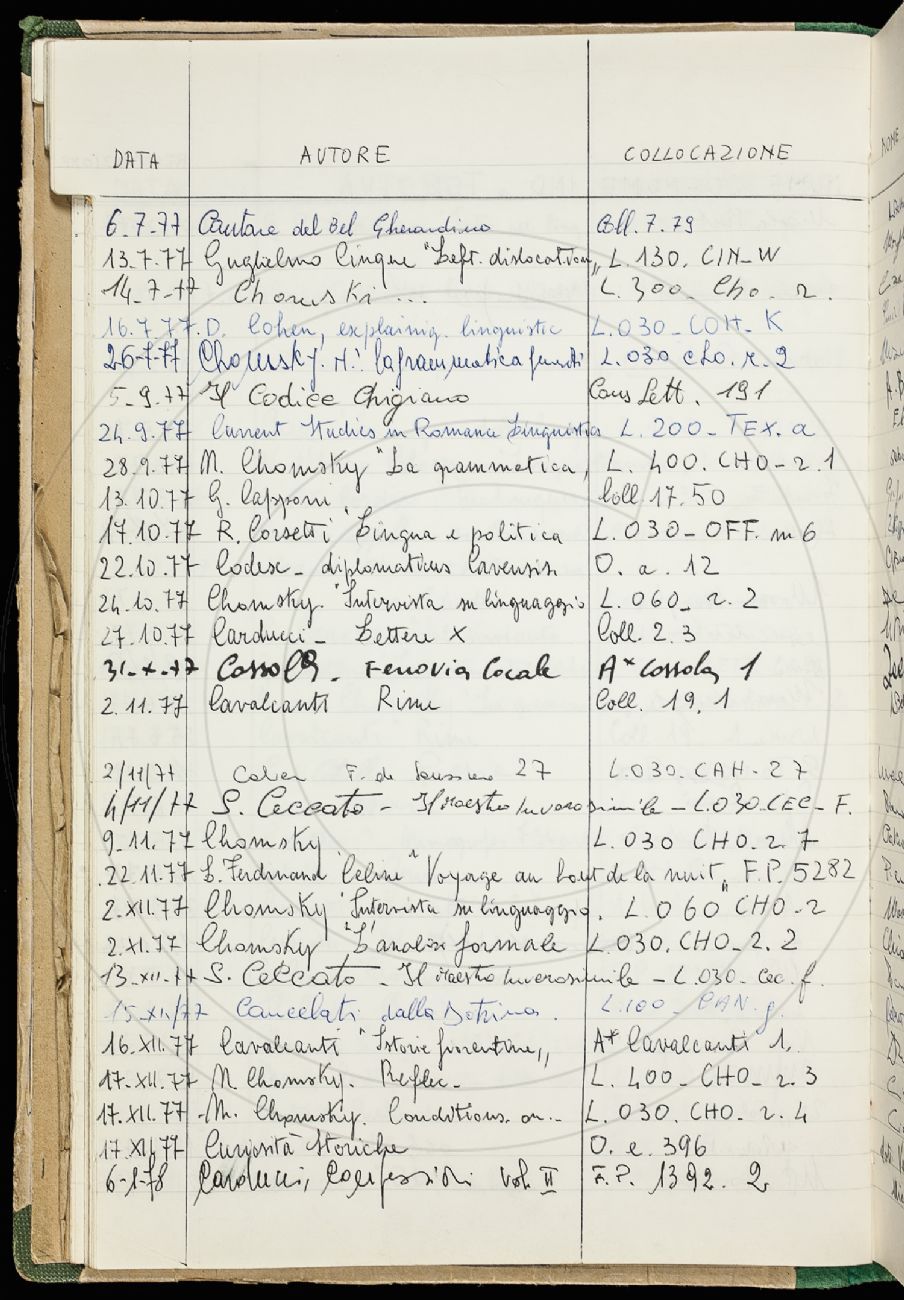 DATA AUTORE COLLOCAZIONE
6.7.77 Cantare del Bel Gherardino Coll. 7.79
13.7.77 Guglielmo Cinque "Left. dislocation" L. 130. CIN-W
14.7.77 Chomski ... L. 300. Cho. 2.
16.7.77. D. Cohen, explainig. linguistic L.030-COH-K
26-7-77 Chomsky. N. La grammatica L. 030 cho. r. 2
5.9.77 Il Codice Chigiano Cons Lett. 191
24.9.77 Current Studies in Romance Linguistics L. 200-TEX. a
28.9.77 N. Chomsky "La grammatica, L. 400. CHO-2.1
13.10.77 G. Capponi Coll 17.50
17.10.77 R. Corsetti "Lingua e politica L. 030-OFF. m 6
22.10.77 Codex-diplomaticus Cavensis O. a. 12
24.10.77 Chomsky. "Intervista su linguaggio L. 060_ 2. 2
27.10.77 Carducci - Lettere X Coll. 2.3
31-X-77 Cassola. Ferrovia locale A* Cassola 1
2.11.77 Cavalcanti Rime Coll. 19.1
2/11/77 F. de Saussure 27 L.030. CAH-27
4/11/77 S. Ceccato - Il maestro inverosimile - L.030.CEC-F.
9.11.77 Chomsky L. 030 CHO-2. 7
22.11.77 L. Ferdinand Celine "Voyage au bout de la nuit" F.P. 5282
2.XII.77 Chomsky "Intervista su linguaggio. L. 060 CHO-2
2.XI.77 Chomsky "L'analisi formale L. 030. CHO-2. 2
13.XII.77 S. Ceccato - Il Maestro inverosimile - L.030. Cec. f.
15-XII/77 Cancelati dalla L.100- CAN. g.
16.XII.77 Cavalcanti "Istorie fiorentine" A* Cavalcanti 1.
17.XII.77 N. Chomsky. Reflec- L. 400-CHO-2.3
17.XII.77 N. Chomsky. Conditions on- L. 030. CHO-2. 4
17.XII.77 Curiosità storiche O. e. 396
6-1-78 Carducci, Confessioni vol. II F.P. 1392. 2